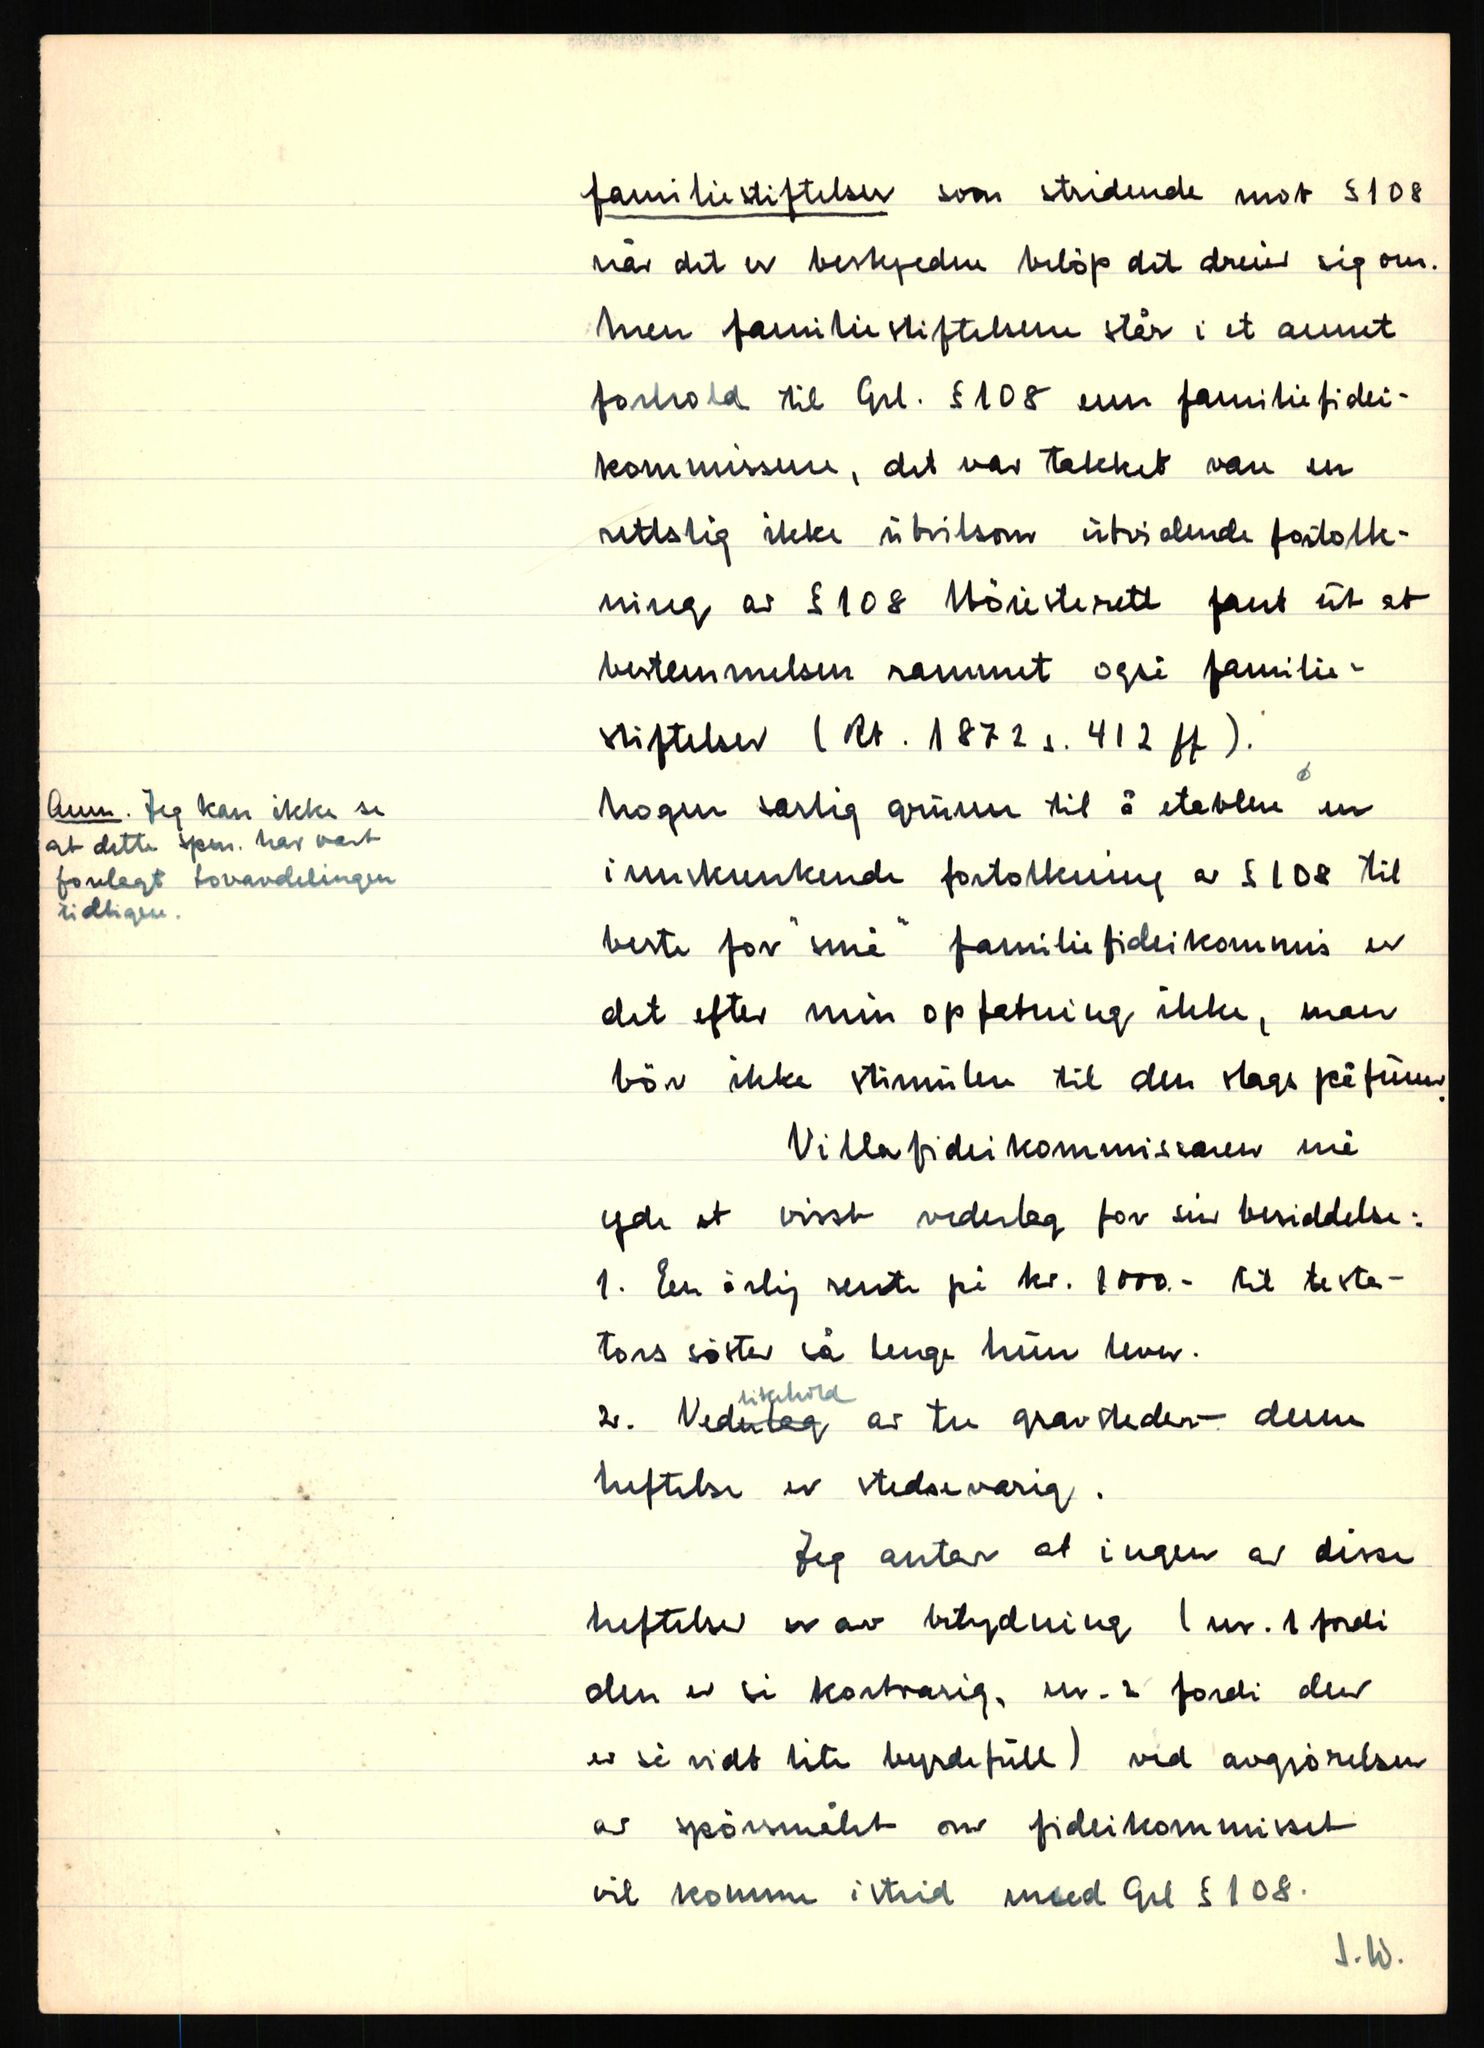 familiestiftelser som stridende mot § 108
når det er beskjedne beløp det dreier sig om.
Men familiestiftelsene står i et annet
forhold til Grl. § 108 enn familiefidei-
kommissene, det var takket være en
rettslig ikke utvilsom utvidende fortolk-
ning av § 108 Höiesterett fant ut at
bestemmelsen rammet også familie-
stiftelser (Rt. 1872 s. 412 ff).
Nogen særlig grunn til å etablere en
innskrenkende fortolkning av § 108 til
beste for "små" familiefideikommis er
det efter min opfatning ikke, man
bör ikke stimulere til den slags påfunn.
Anm. Jeg kan ikke se
at dette spm. har vært
forelagt Lovavdelingen
tidligere.
Villafideikommissaren må
yde et visst vederlag for sin besiddelse:
1. En årlig rente på kr. 1000.- til testa-
tors söster så lenge hun lever.
2. Vedlikehold av tre gravsteder - denne
heftelse er stedsevarig.
Jeg antar at ingen av disse
heftelser er av betydning (nr. 1 fordi
den er så kortvarig, nr. 2 fordi den
er så vidt lite byrdefull) ved avgjörelsen
av spörsmålet om fideikommisset
vil komme i strid med Grl § 108.
S.W.